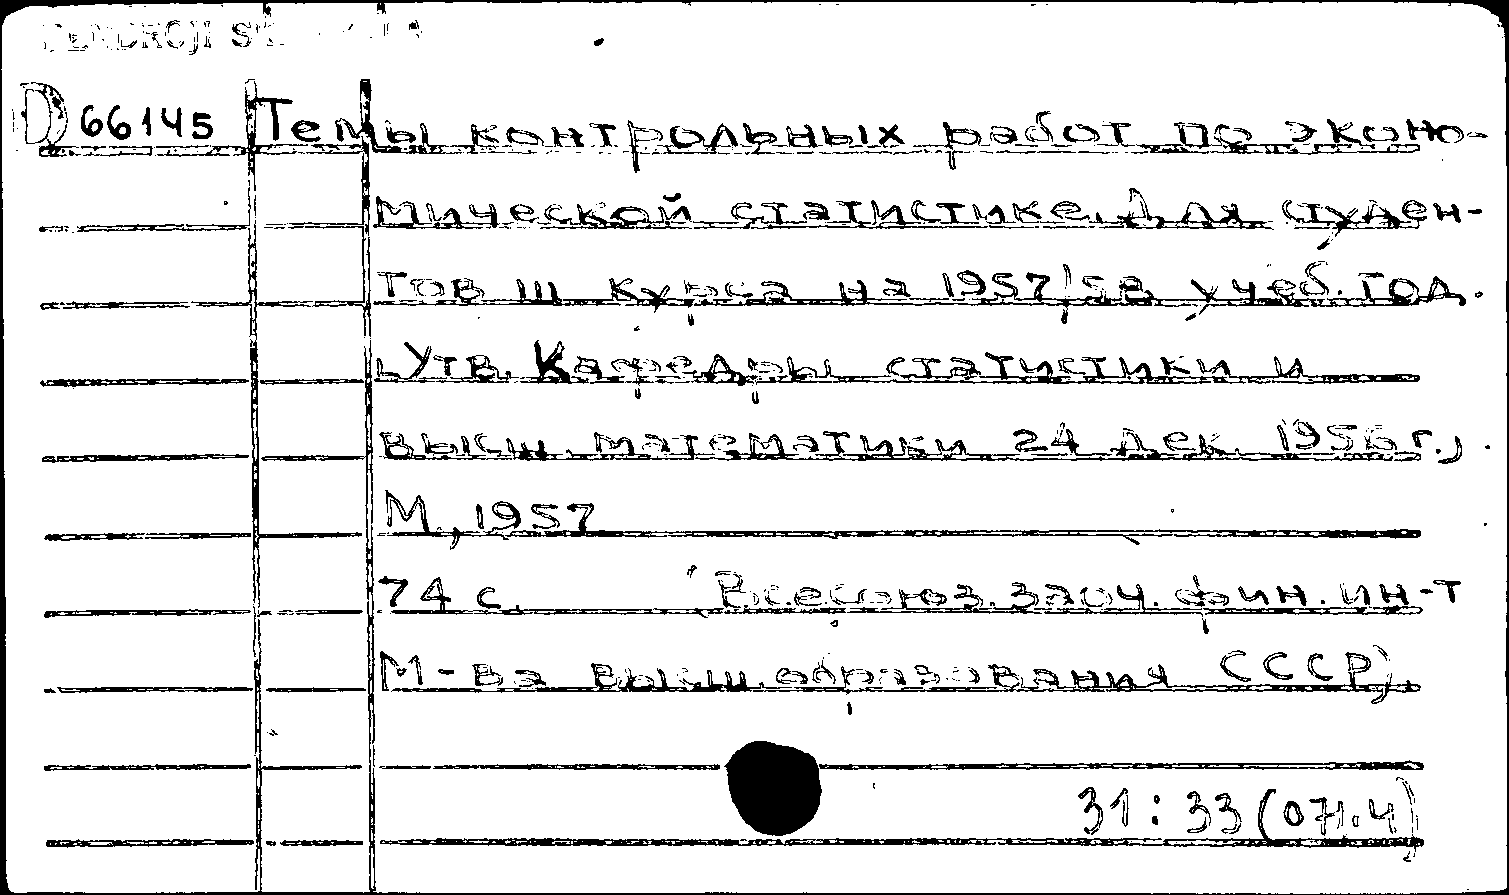 BENDROJI
D 66145 Темы контрольных работ по эконо-
мической статистике. Для студен-
тов III курса на 1957/58 учеб. год.
Утв. Кафедры статистики и
высш. математики 24 дек. 1956 г.,
М., 1957
74 с. Всесоюз. заоч. фин. ин-т
М-ва высш. образования СССР).
31:33(071.4)